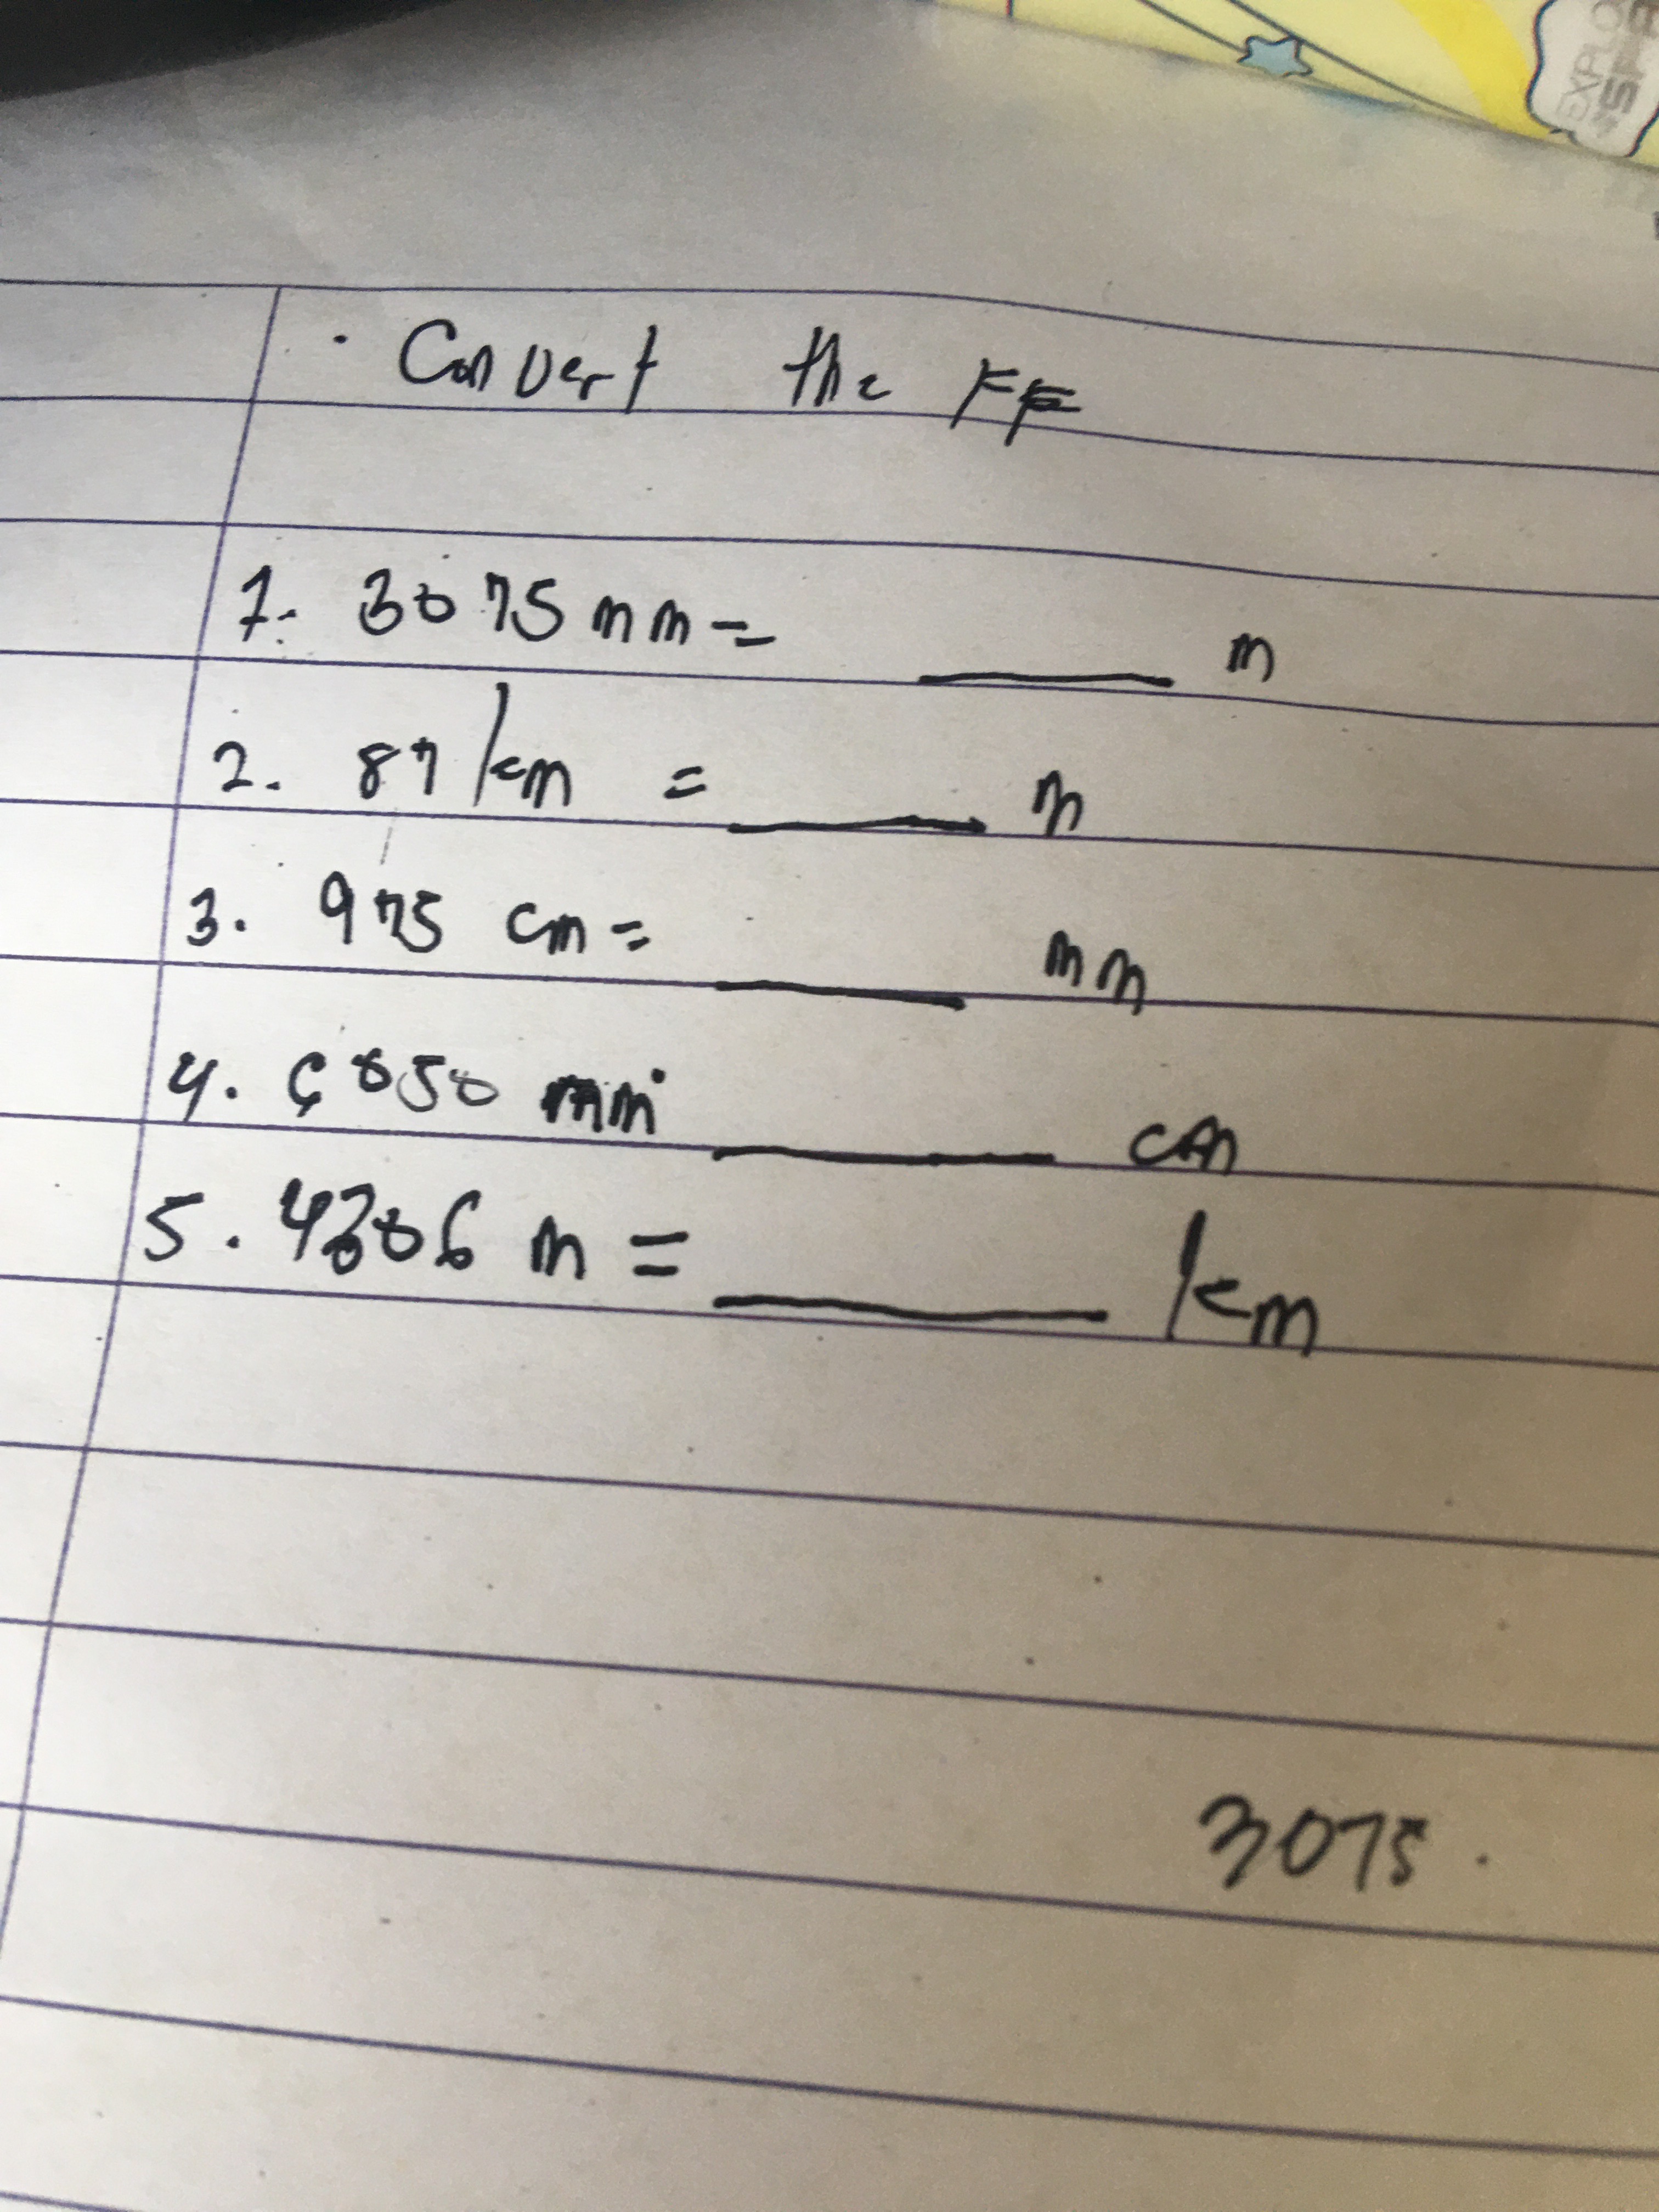 EXPLO
· Convert the FF
1. 3075 mm = ____ m
2. 87 km = ____ m
3. 975 cm = ____ mm
4. 6050 mm ____ cm
5. m = ____ km
3075.